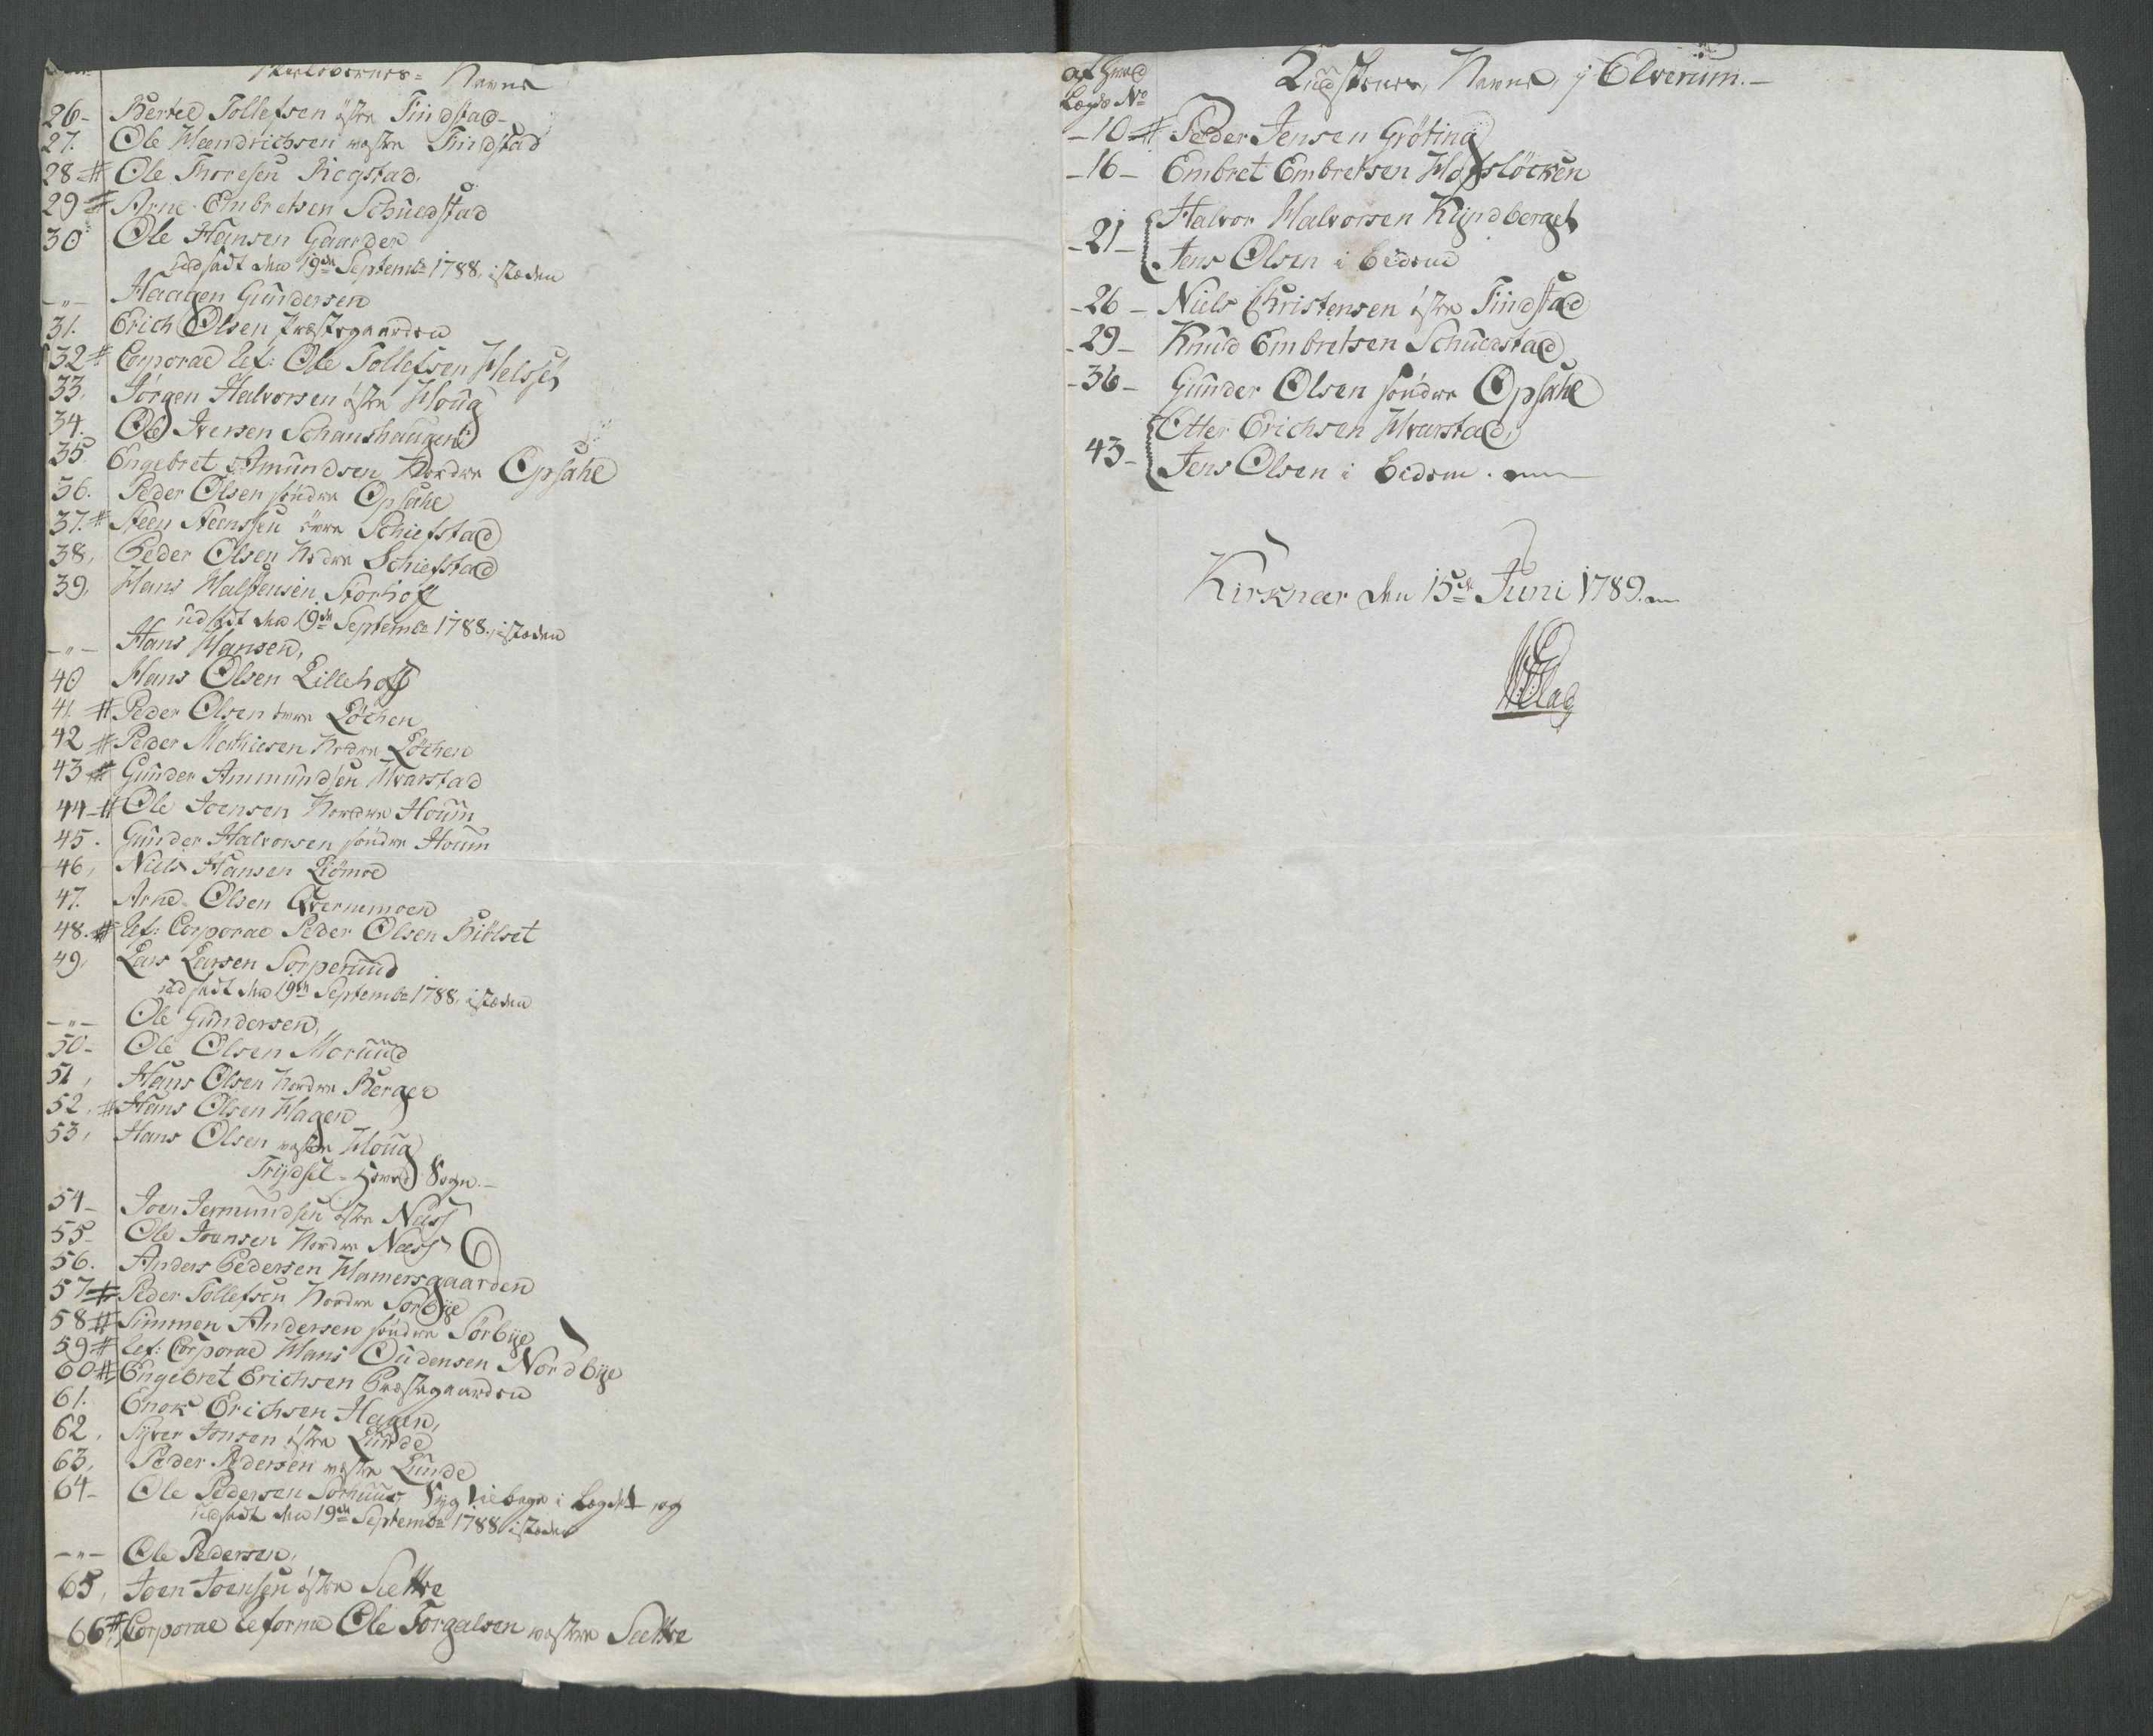 Navne
26- Bertel Tollefsen östre Findstad
27. Ole Hendrichsen westre Findstad
28 # Ole Thoresen Ricgstad
29 # Arne Embretsen Schuldstad
30 Ole Hansen Gaarder
udsadt den 19de Septembr 1788, isteden
-"- Haagen Gundersen
31. Erich Olsen Præstegaarden
32 # Corporal Ref: Ole Tollefsen Helset
33. Jörgen Halvorsen östre Houg
34. Ole Iversen Schanshaugen
35. Engebret Amundsen Nordre Opsahl
36. Peder Olsen söndre Opsahl
37. # Steen Steenssen övre Schiefstad
38, Peder Olsen Nedre Schiefstad
39, Hans Halstensen Storhoff
udsadt den 19de Septembr 1788, isteden
-"- Hans Hansen,
40 Hans Olsen Lillehoff
41. # Peder Olsen övre Löchen
42 # Peder Mathiesen Nedre Löchen
43 # Gunder Ammundsen Hvarstad
44- # Ole Joensen Nordre Houm
45. Gunder Halvorsen söndre Houm
46, Niels Hansen Liömoe
47. Arne Olsen Qvernemoen
48. # Ref: Corporal Peder Olsen Biölset
49, Lars Larsen Sorperuud
udsadt den 19de Septembr 1788, isteden
-"- Ole Gundersen,
50- Ole Olsen Moruud
51, Hans Olsen Nordre Berger
52, # Hans Olsen Hagen
53, Hans Olsen westre Houg
Trysel Hoved Sogn.
54- Joen Jermundsen östre Næss
55- Ole Joensen Nordre Næss
56. Anders Pedersen Hamersgaarden
57 # Peder Tollefsen Nordre Sörbye
58 # Simmen Andersen söndre Sörbye
59 # Ref: Corporal Hans Oudensen Nordbye
60 # Engebret Erichsen Præstegaarden
61. Enok Erichsen Hagen,
62, Syver Jonsen östre Lunde
63, Peder Pedersen westre Lunde
64- Ole Pedersen Sorhuus, Syg tilbage i Lægdet, og
udsadt den 19de Septembr 1788 isteden
-"- Ole Pedersen,
65, Joen Joensen östre Sættre
66 # Corporal Reforme Ole Torgalsen westre Sættre
af hvad Lægds No
Ludskernes Navne, j Elverum.-
-10- # Peder Jensen Gröting
-16- Embret Embretsen Hofslöcken
-21- Halvor Halvorsen Kyndberget
Jens Olsen i bedsme
-26- Niels Christensen östre Findstad
-29- Knud Embretsen Schulstad
-36- Gunder Olsen söndre Opsahl
43- Otter Erichsen Hvarstad,
Jens Olsen i bedsme.
Kirknær den 15de Juni 1789.